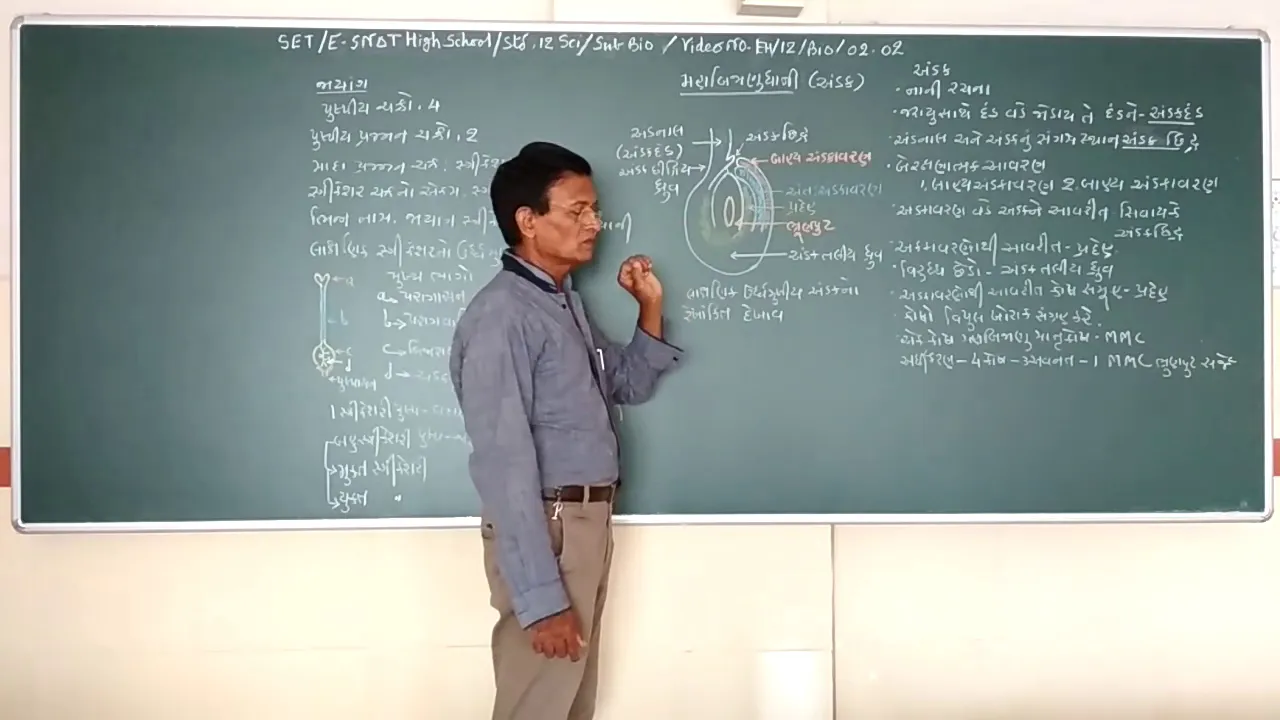 SET/E-SNDT High School/Std.12 Sci/Sub Bio / Video No. EH/12/Bio/02.02
જાયાંગ
પુષ્પીય ચક્રો. 4
પુષ્પીય પ્રજનન ચક્રો. 2
માદા પ્રજનન ચક્ર. સ્ત્રીકેસર
મુખ્ય ભાગો
a
b
c
d
a → પરાગાસન
b →
c →
d → અંડક
પુષ્પાસન
1 સ્ત્રીકેસરી પુષ્પ -
બહુસ્ત્રીકેસરી પુષ્પ -
→ મુક્ત સ્ત્રીકેસરી
→ યુક્ત "
મહાબીજાણુધાની (અંડક)
અંડનાલ
(અંડકદંડ)
અંડકછિદ્રીય
ધ્રુવ
અંડકછિદ્ર
બાહ્ય અંડકાવરણ
અંતઃ અંડકાવરણ
પ્રદેહ
ભ્રૂણપુટ
અંડકતલીય ધ્રુવ
લાક્ષણિક અંડકનો
રેખાંકિત દેખાવ
અંડક
• નાની રચના
• જરાયુ સાથે દંડ વડે જોડાય તે દંડને - અંડકદંડ
• અંડનાલ અને અંડકનું સંગમ સ્થાન અંડક છિદ્ર
• બે રક્ષણાત્મક આવરણ
1. બાહ્ય અંડકાવરણ 2. બાહ્ય અંડકાવરણ
• અંડકાવરણ વડે અંડકને આવરીત સિવાય કે
અંડકછિદ્ર
• અંડકાવરણોથી આવરીત - પ્રદેહ
• વિરુધ્ધ છેડો - અંડકતલીય ધ્રુવ
• અંડકાવરણોથી આવરીત કોષ સમૂહ - પ્રદેહ
• કોષો વિપુલ ખોરાક સંગ્રહ કરે.
• એક કોષ મહાબીજાણુ માતૃકોષ - MMC
અર્ધીકરણ - 4 કોષ - 3 અવનત - 1 MMC ભ્રૂણપુટ સર્જે